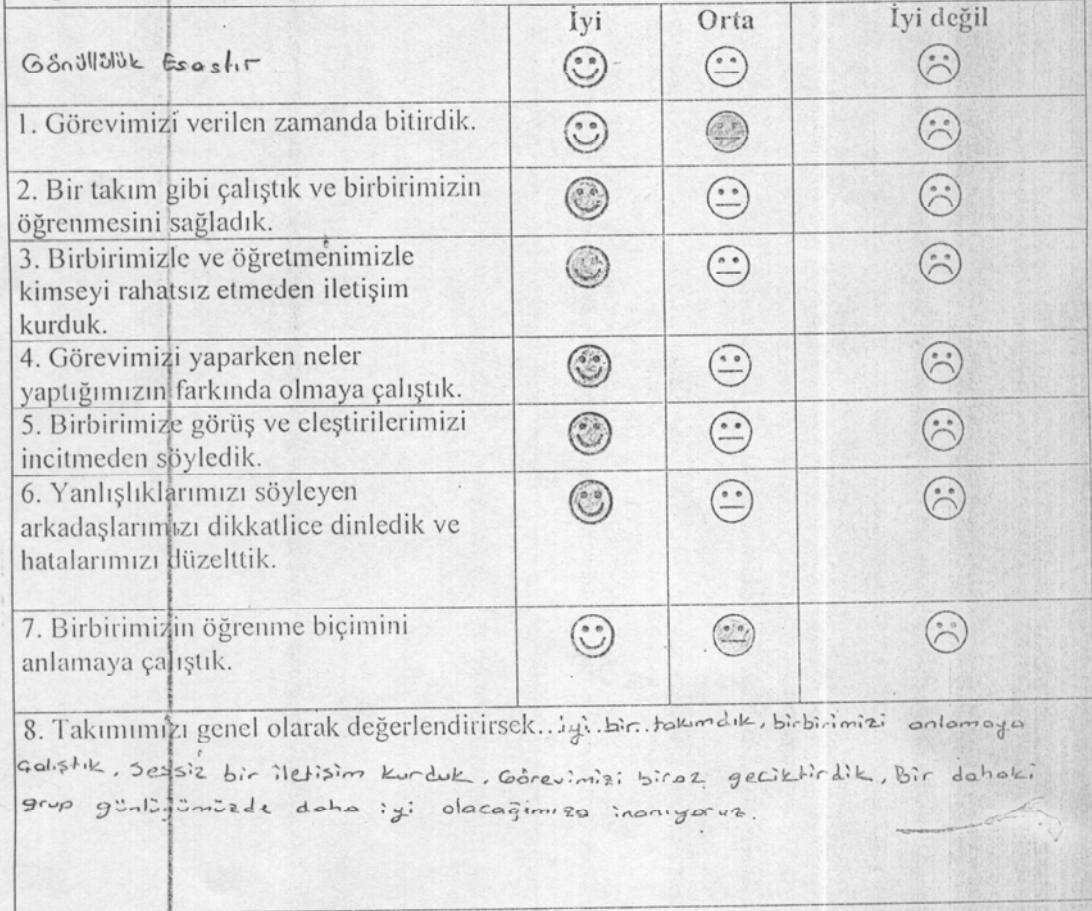 İyi Orta İyi değil
Gönüllülük Esastır
1. Görevimizi verilen zamanda bitirdik.
2. Bir takım gibi çalıştık ve birbirimizin
öğrenmesini sağladık.
3. Birbirimizle ve öğretmenimizle
kimseyi rahatsız etmeden iletişim
kurduk.
4. Görevimizi yaparken neler
yaptığımızın farkında olmaya çalıştık.
5. Birbirimize görüş ve eleştirilerimizi
incitmeden söyledik.
6. Yanlışlıklarımızı söyleyen
arkadaşlarımızı dikkatlice dinledik ve
hatalarımızı düzelttik.
7. Birbirimizin öğrenme biçimini
anlamaya çalıştık.
8. Takımımızı genel olarak değerlendirirsek..iyi..bir..takımdık, birbirimizi anlamaya
çalıştık, Sessiz bir iletişim kurduk, Görevimizi biraz geciktirdik, Bir dahaki
grup günlüğümüzde daha iyi olacağımıza inanıyoruz.